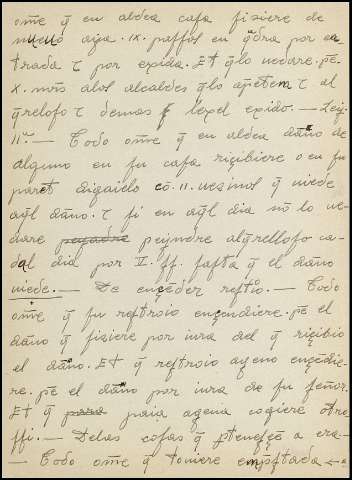 ome q̃ en aldea casa fiziere de
nueuo aya .IX. passos en q̃dra por en-
trada τ por exida. Et q̃lo uedare .pẽ.
X. mrs̃ alos alcaldes q̃lo ap̃eten τ al
q̃reloso τ demas lexel exido. — Ley.
II.ª — Todo ome q̃ en aldea daño de
alguno en su casa riçibiere o en su
paret digaielo cõ .II. uezinos q̃ uiede
aq̃l daño. τ si en aq̃l dia nõ lo ue-
dare peyndre alq̃relloso ca-
dal dia por II. ss. fasta q̃ el daño
uiede. — De ençeder restro. — Todo
ome q̃ su rastroio ençendiere. pẽ el
daño q̃ fiziere por iura del q̃ riçibio
el daño. Et q̃ rastroio ageno ençedie-
re. pẽ el daño por iura de su señor.
Et q̃ paia agena cogiere otre
ssi. — Delas cosas q̃ ptenesçẽ a era —
— Todo ome q̃ touiere emp̃stada